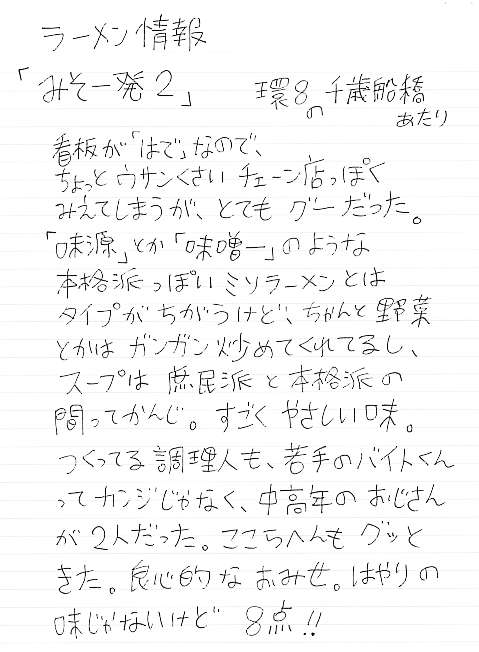 ラーメン情報
「みそ一発2」 環8の千歳船橋あたり
看板が「はで」なので、
ちょっと ウサンくさい チェーン店っぽく
みえてしまうが、とても グーだった。
「味源」とか「味噌一」のような
本格派っぽいミソラーメンとは
タイプが ちがうけど、ちゃんと 野菜
とかは ガンガン炒めてくれてるし、
スープは 庶民派と本格派の
間ってかんじ。すごく やさしい味。
つくってる調理人も、若手のバイトくん
ってカンジじゃなく、中高年のおじさん
が2人だった。ここらへんも グッと
きた。良心的な おみせ。はやりの
味じゃないけど 8点!!